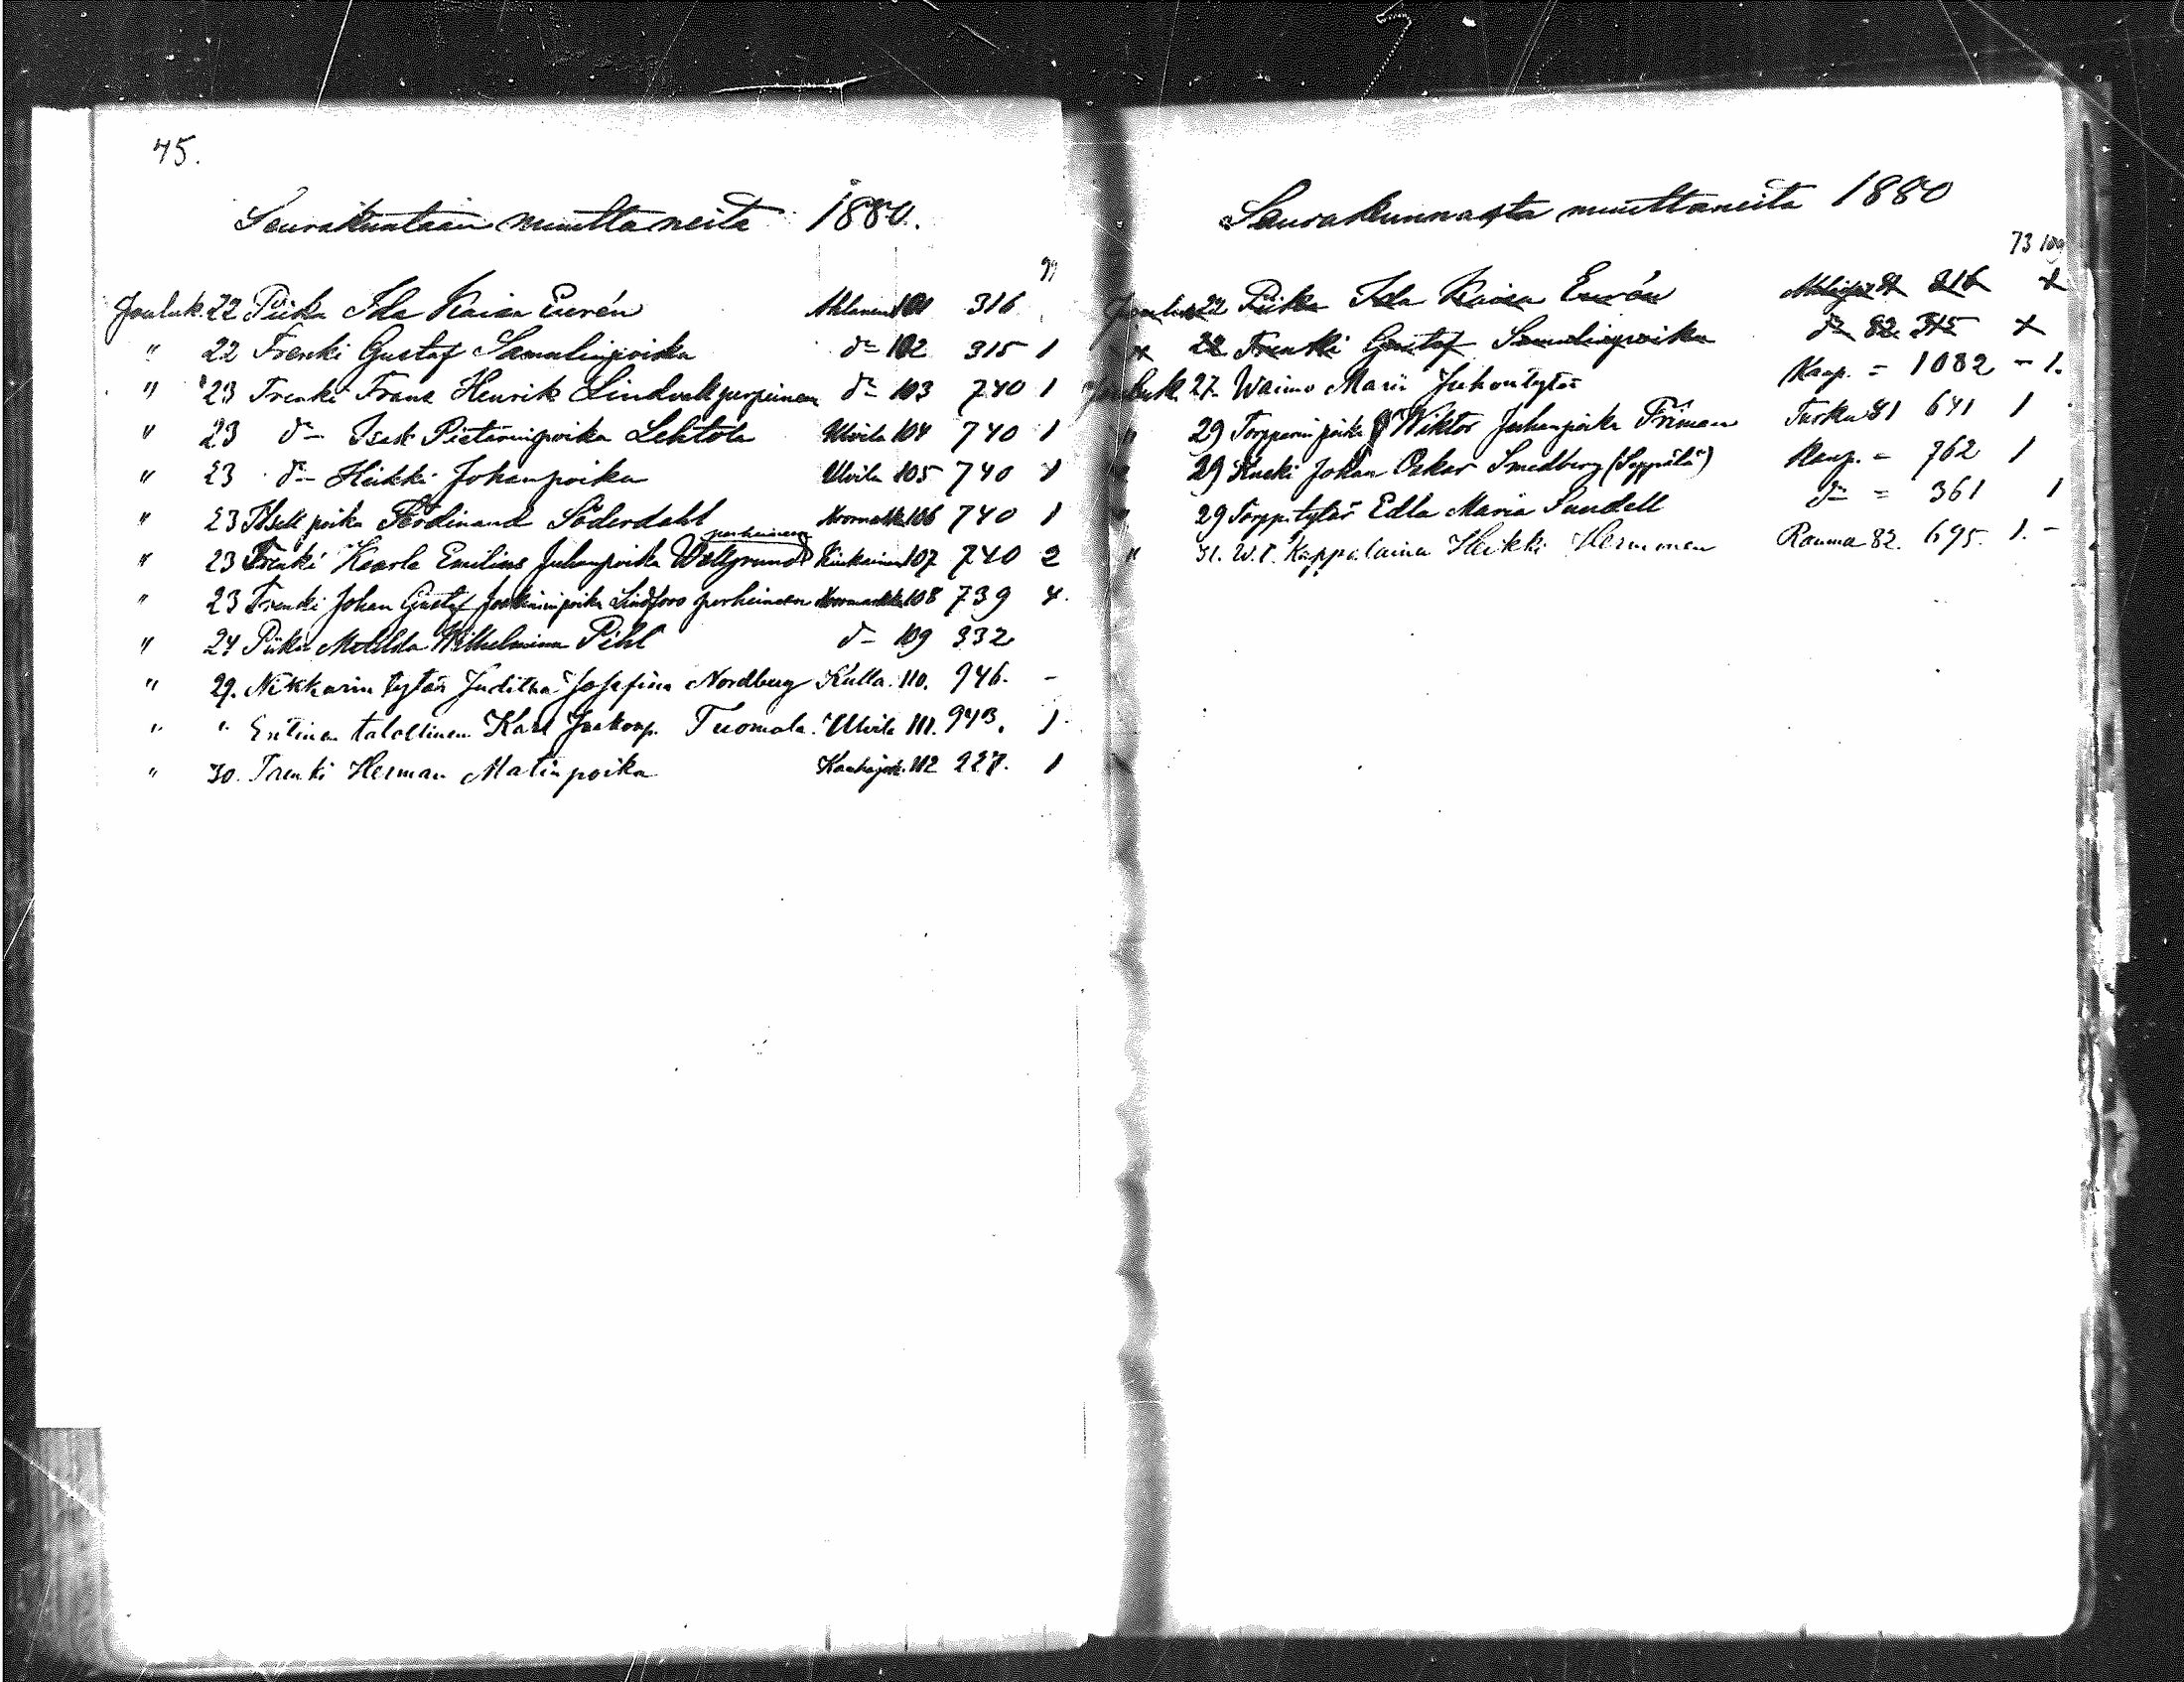 45.
Seurakuntaan muuttaneita 1880.
Jouluk. 22 Piika Ida Kaisa Eurén 101 316
" 22 Trenki Gustaf Samulinpoika d:o 102 315 1
" 23 Trenki Frans Henrik Lindvall perheineen d:o 103 740 1
" 23 d:o Isak Pietarinpoika Lehtola Ulvila 104 740 1
" 23 d:o Heikki Johanpoika Ulvila 105 740 1
" 23 poika Ferdinand Söderdahl Noormarkk 106 740 1
perheineen
" 23 Trenki Kaarle Emilius Juhanpoika Wellgrund Kiukainen 107 740 2
" 23 Trenki Johan Gustaf Lindfors perheineen Noormarkku 108 739 4.
" 24 Piika Matilda Wilhelmina Pihl d:o 109 332
" 29. Nikkarin tytär Juditha Josefina Nordberg Kulla. 110. 946. -
" " Entinen talollinen Karl Jaakonp. Tuomala. Ulvila 111. 943. 1.
" 30. Trenki Herman Matinpoika Kauhajok. 112 227. 1
Seurakunnasta muuttaneita 1880
73 100
Jouluk 22 Piika Ida Kaisa Eurén 316
22 Trenki Gustaf Samulinpoika d:o 82. 315
Jouluk. 27. Waimo Maria Juhontytär Kaup. = 1082 - 1.
" 29 Torpparinpoika Wiktor Juhanpoika Friman Turku 81 641 1
29 Johan Oskar Smedberg (Seppälä) Kaup. = 762 1
" 29 Torppritytär Edla Maria Sundell d:o = 361 1
" 31. W.t. Kappalainen Heikki Hermonen Rauma 82. 695. 1. -